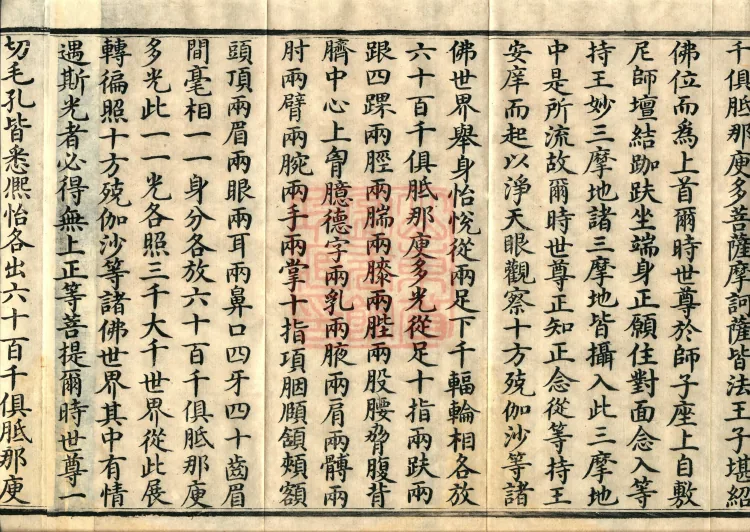 千俱胝那庾多菩薩摩訶薩皆法王子堪紹
佛位而為上首爾時世尊於師子座上自敷
尼師壇結跏趺坐端身正願住對面念入等
持王妙三摩地諸三摩地皆攝入此三摩地
中是所流故爾時世尊正知正念從等持王
安庠而起以淨天眼觀察十方殑伽沙等諸
佛世界舉身怡悅從兩足下千輻輪相各放
六十百千俱胝那庾多光從足十指兩趺兩
跟四踝兩脛兩腨兩膝兩䏶兩股腰脅腹背
臍中心上胷臆德字兩乳兩腋兩肩兩髆兩
肘兩臂兩腕兩手兩掌十指項胭頤頷頰額
頭頂兩眉兩眼兩耳兩鼻口四牙四十齒眉
間毫相一一身分各放六十百千俱胝那庾
多光此一一光各照三千大千世界從此展
轉徧照十方殑伽沙等諸佛世界其中有情
遇斯光者必得無上正等菩提爾時世尊一
切毛孔皆悉熈怡各出六十百千俱胝那庾